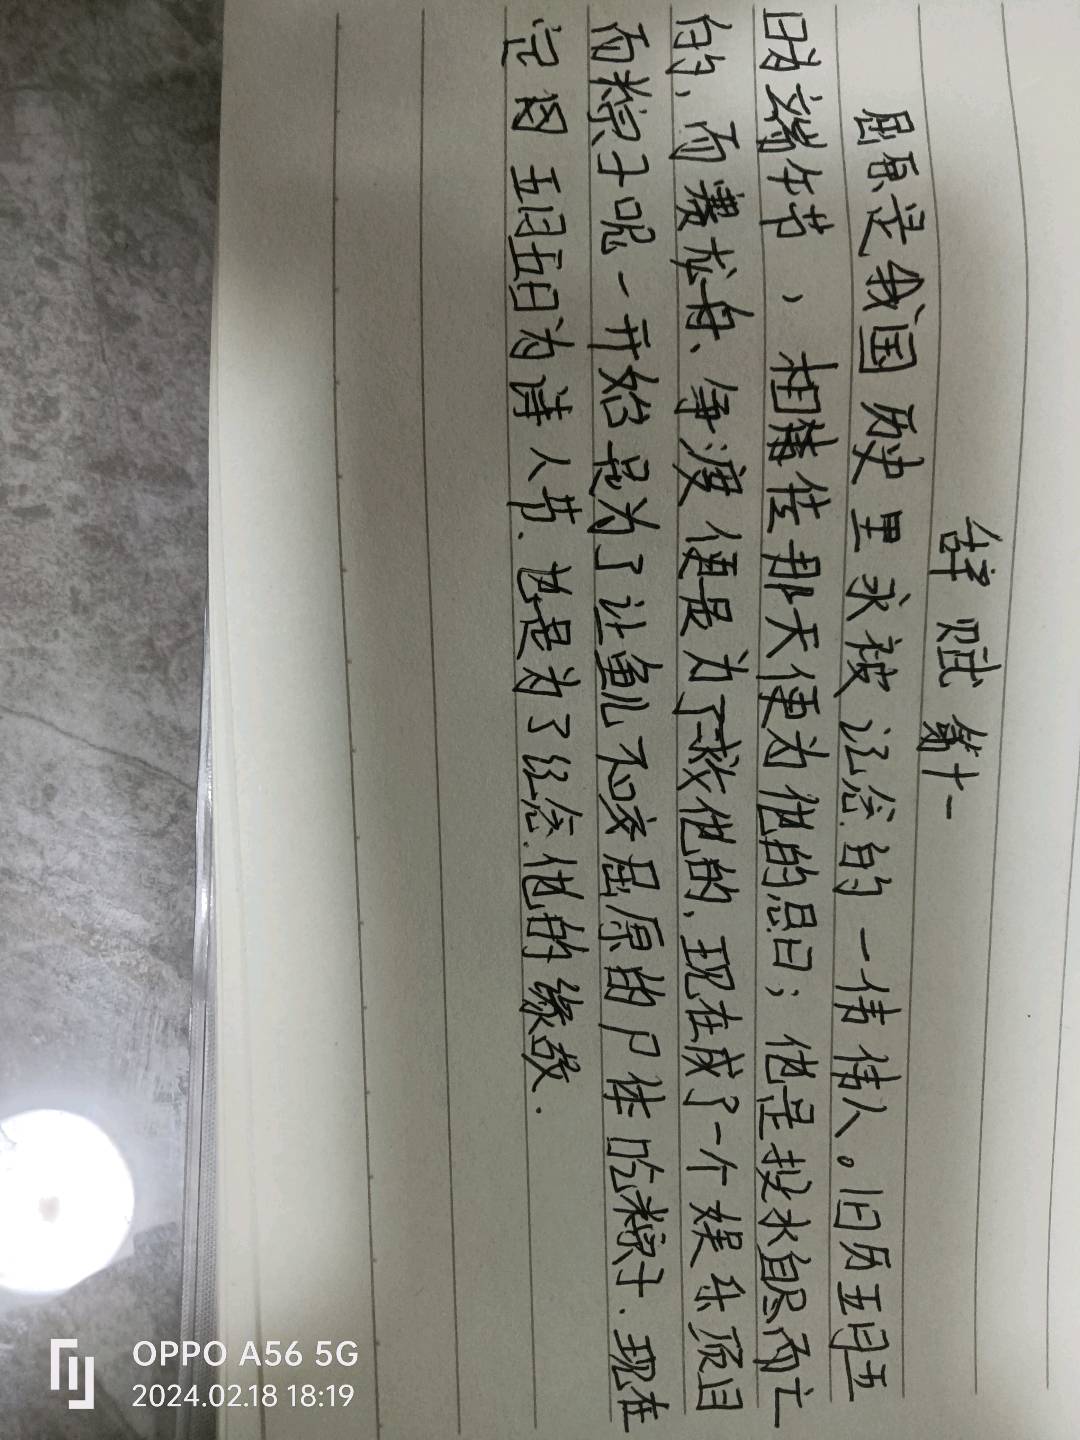 辞赋第十一
屈原是我国历史里永被记念的一伟伟人。旧历五月五
日为端午节，相猜传那天便为他的忌日；他是投水自尽而亡
的，而赛龙舟、争渡便是为了救他的，现在成了一个娱乐项目
而粽子呢一开始是为了让鱼儿不咬屈原的尸体吃粽子．现在
定国五月五日为诗人节．也是为了纪念他的缘故．
OPPO A56 5G
2024.02.18 18:19